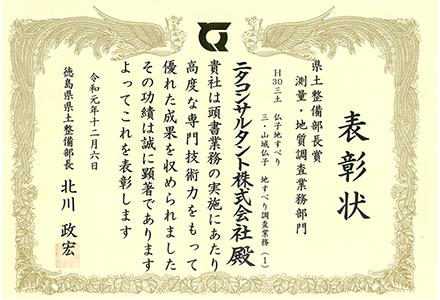 表彰状
県土整備部長賞
測量・地質調査業務部門
H30三土 仏子地すべり
三・山城仏子 地すべり調査業務(1)
ニタコンサルタント株式会社 殿
貴社は頭書業務の実施にあたり
高度な専門技術力をもって
優れた成果を収められました
その功績は誠に顕著であります
よってこれを表彰します
令和元年十二月六日
徳島県県土整備部長 北川 政宏